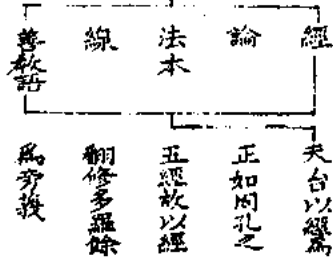 經
論
法本
線
善教語
天台以經為
正如周孔之
五經故以經
翻修多羅餘
為旁援